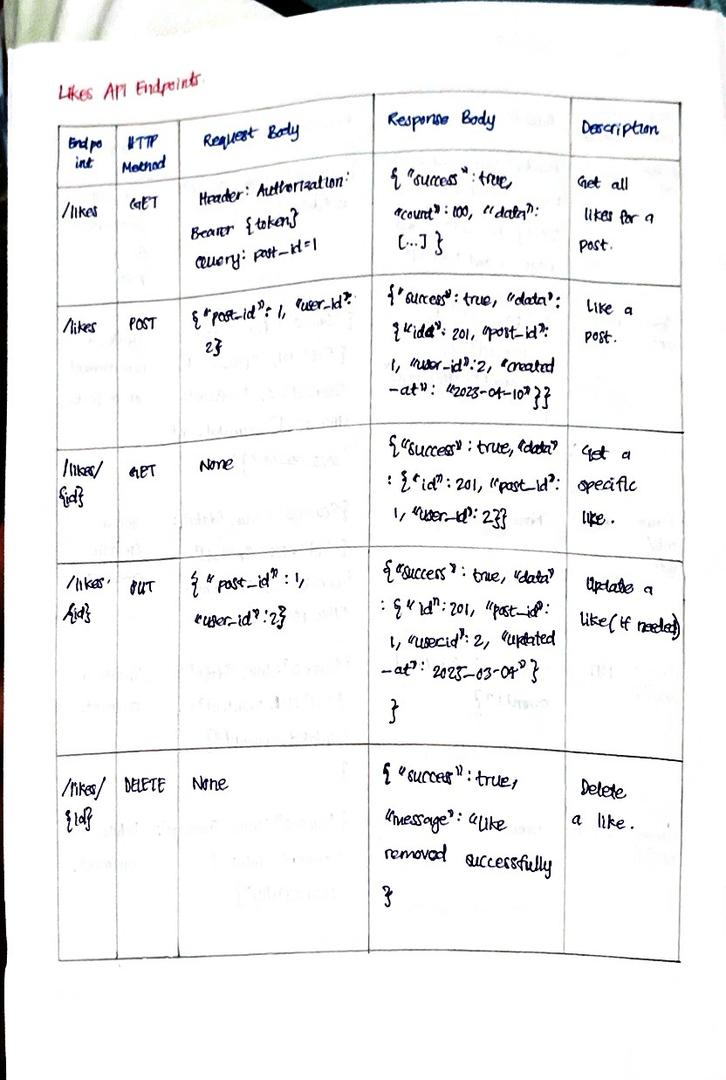 Likes API Endpoints
Endpo
int
HTTP
Method
Request Body
Response Body
Description
/likes
GET
Header: Authorization:
Bearer {token}
Query: post_id=1
{ "success": true,
"count": 100, "data":
[...] }
Get all
likes for a
post.
/likes
POST
{"post_id": 1, "user_id":
2}
{"success": true, "data":
{"idd": 201, "post_id":
1, "user_id": 2, "created
_at": "2023-04-10"}}
Like a
post.
/likes/
{id}
GET
None
{"success": true, "data"
: {"id": 201, "post_id":
1, "user_id": 2}}
Get a
specific
like.
/likes/
{id}
PUT
{ "post_id": 1,
"user_id": 2}
{"success": true, "data"
: { "id": 201, "post_id":
1, "usecid": 2, "updated
_at": 2023-03-04"}
}
Update a
like (if needed)
/likes/
{id}
DELETE
None
{ "success": true,
"message": "Like
removed successfully
}
Delete
a like.